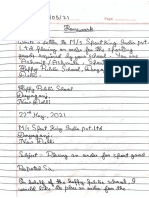 /05/21 Page:
Homework
Write a letter to M/s Sport King India pvt.
Ltd placing an order for the sporting
goods required by your school. You are
Ashmit/Ashmita, Sports
Happy Public School, Daryaganj
New Delhi
Happy Public School
Daryaganj
New Delhi
22nd May, 2021
M/s Sport King India pvt. ltd
Daryaganj
New Delhi
Subject - Placing an order for sport good
Respected Sir,
On behalf of the Happy Public School, I
would like to place an order for the